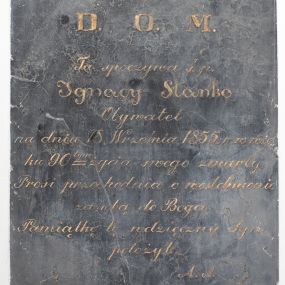 D. O. M.
Tu spoczywa ś.p.
Ignacy Stanko
Obywatel
na dniu 15 Wrzesnia 1855 r. w ro
ku 90 tym życia swego zmarły
Prosi przechodnia o westchnienie
za nim do Boga
Pamiątkę tę wdzięczny Syn
położył
A.